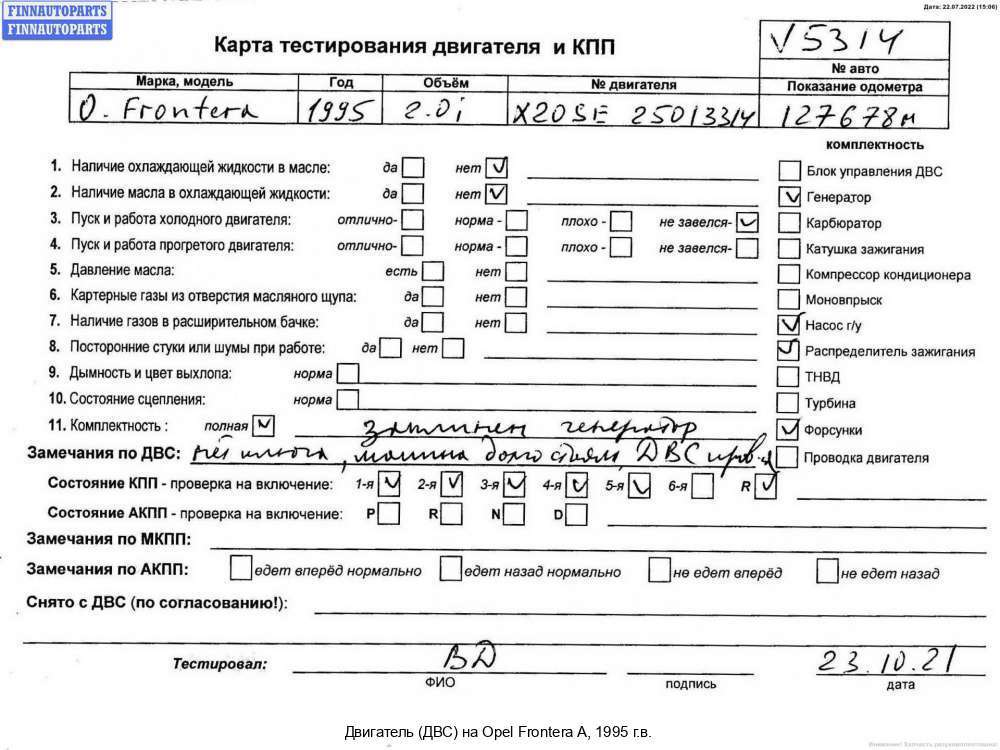 Дата: 22.07.2022 (15:06)
FINNAUTOPARTS
FINNAUTOPARTS
Карта тестирования двигателя и КПП
V5314
№ авто
Марка, модель Год Объём № двигателя Показание одометра
O. Frontera 1995 2.0i X20SE 25013314 127678м
комплектность
1. Наличие охлаждающей жидкости в масле: да нет Блок управления ДВС
2. Наличие масла в охлаждающей жидкости: да нет Генератор
3. Пуск и работа холодного двигателя: отлично- норма - плохо - не завелся- Карбюратор
4. Пуск и работа прогретого двигателя: отлично- норма - плохо - не завелся- Катушка зажигания
5. Давление масла: есть нет Компрессор кондиционера
6. Картерные газы из отверстия масляного щупа: да нет Моновпрыск
7. Наличие газов в расширительном бачке: да нет Насос г/у
8. Посторонние стуки или шумы при работе: да нет Распределитель зажигания
9. Дымность и цвет выхлопа: норма ТНВД
10. Состояние сцепления: норма Турбина
11. Комплектность : полная генератор Форсунки
Замечания по ДВС: нет ключа, машина долго стояла, ДВС Проводка двигателя
Состояние КПП - проверка на включение: 1-я 2-я 3-я 4-я 5-я 6-я R
Состояние АКПП - проверка на включение: P R N D
Замечания по МКПП:
Замечания по АКПП: едет вперёд нормально едет назад нормально не едет вперёд не едет назад
Снято с ДВС (по согласованию!):
Тестировал: ВД 23.10.21
ФИО подпись дата
Двигатель (ДВС) на Opel Frontera A, 1995 г.в.